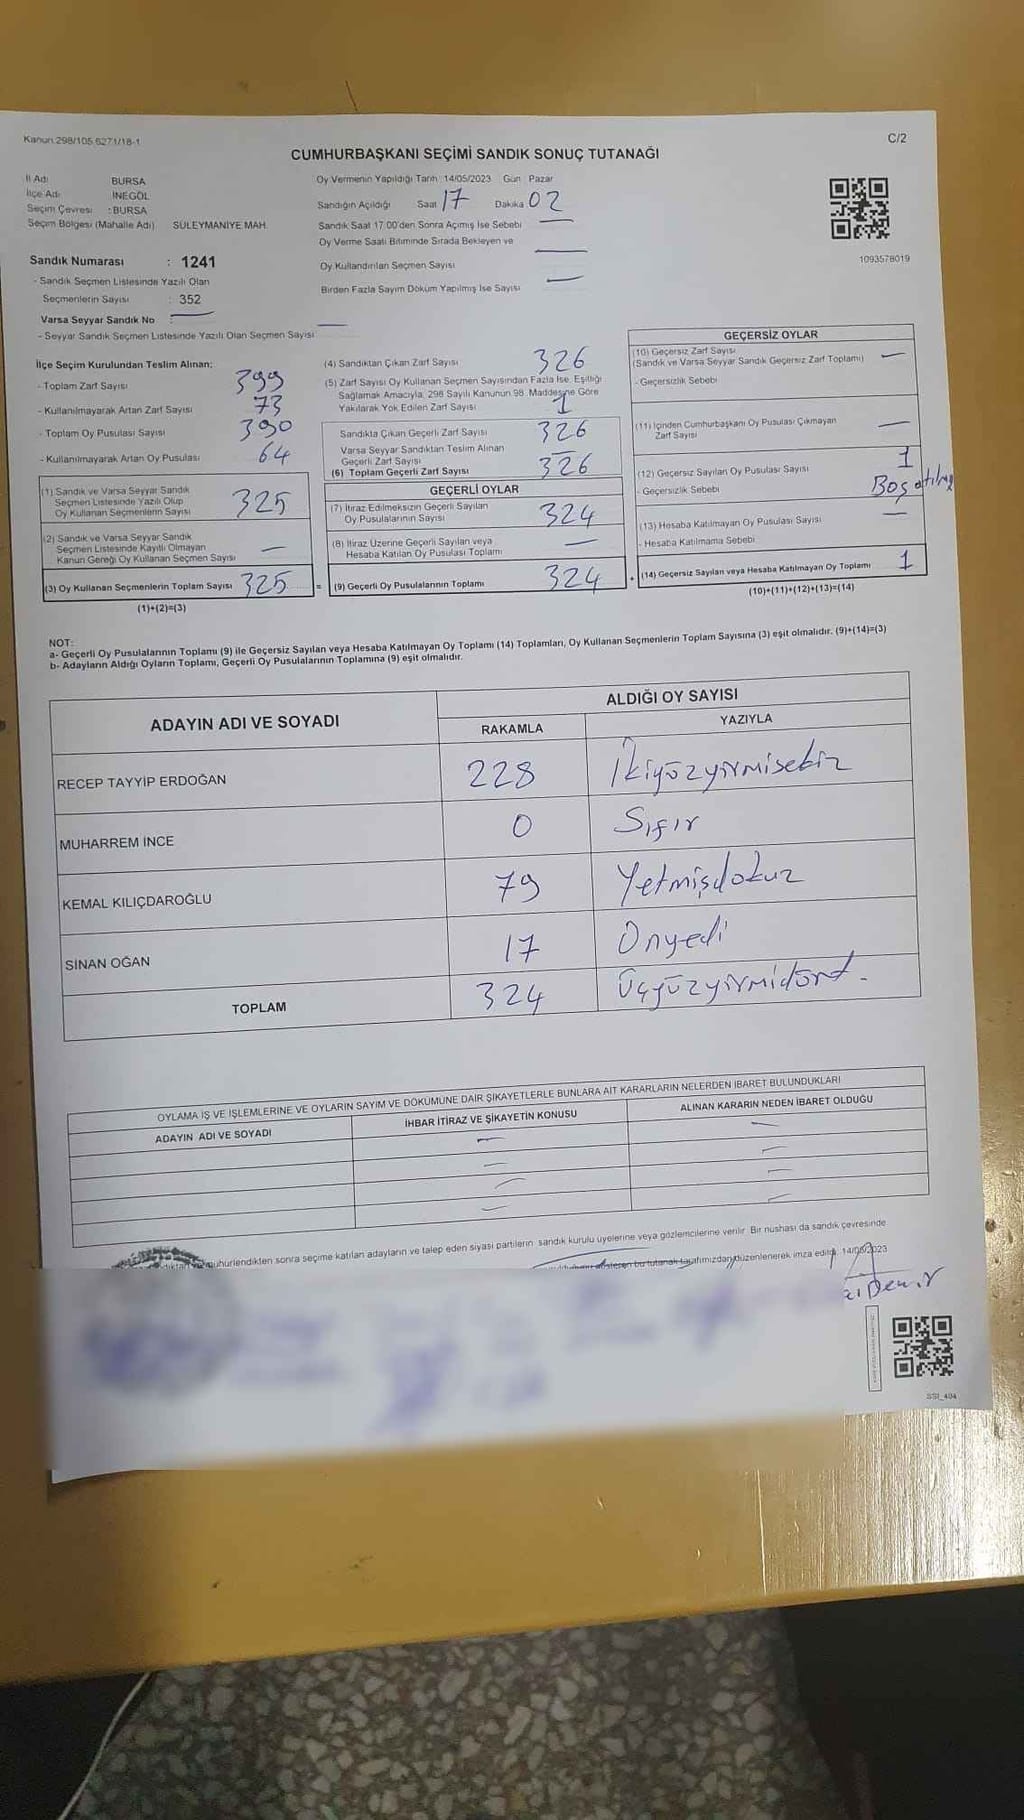 Kanun 298/105.6271/18-1
C/2
CUMHURBAŞKANI SEÇİMİ SANDIK SONUÇ TUTANAĞI
İl Adı BURSA
İlçe Adı İNEGÖL
Seçim Çevresi : BURSA
Seçim Bölgesi (Mahalle Adı) SÜLEYMANİYE MAH.
Sandık Numarası : 1241
- Sandık Seçmen Listesinde Yazılı Olan
Seçmenlerin Sayısı : 352
Varsa Seyyar Sandık No :
- Seyyar Sandık Seçmen Listesinde Yazılı Olan Seçmen Sayısı
Oy Vermenin Yapıldığı Tarih :14/05/2023 Gün : Pazar
Sandığın Açıldığı Saat 17 Dakika 02
Sandık Saat 17.00'den Sonra Açımış İse Sebebi
Oy Verme Saati Bitiminde Sırada Bekleyen ve
Oy Kullandırılan Seçmen Sayısı
Birden Fazla Sayım Döküm Yapılmış İse Sayısı
1093578019
İlçe Seçim Kurulundan Teslim Alınan:
- Toplam Zarf Sayısı 399
- Kullanılmayarak Artan Zarf Sayısı 73
- Toplam Oy Pusulası Sayısı 390
- Kullanılmayarak Artan Oy Pusulası 64
(1) Sandık ve Varsa Seyyar Sandık
Seçmen Listesinde Yazılı Olup
Oy Kullanan Seçmenlerin Sayısı 325
(2) Sandık ve Varsa Seyyar Sandık
Seçmen Listesinde Kayıtlı Olmayan
Kanun Gereği Oy Kullanan Seçmen Sayısı —
(3) Oy Kullanan Seçmenlerin Toplam Sayısı 325 =
(1)+(2)=(3)
(4) Sandıktan Çıkan Zarf Sayısı 326
(5) Zarf Sayısı Oy Kullanan Seçmen Sayısından Fazla İse, Eşitliği
Sağlamak Amacıyla; 298 Sayılı Kanunun 98. Maddesine Göre
Yakılarak Yok Edilen Zarf Sayısı 1
Sandıkta Çıkan Geçerli Zarf Sayısı 326
Varsa Seyyar Sandıktan Teslim Alınan
Geçerli Zarf Sayısı —
(6) Toplam Geçerli Zarf Sayısı 326
GEÇERLİ OYLAR
(7) İtiraz Edilmeksizin Geçerli Sayılan
Oy Pusulalarının Sayısı 324
(8) İtiraz Üzerine Geçerli Sayılan veya
Hesaba Katılan Oy Pusulası Toplamı —
(9) Geçerli Oy Pusulalarının Toplamı 324 +
GEÇERSİZ OYLAR
(10) Geçersiz Zarf Sayısı
(Sandık ve Varsa Seyyar Sandık Geçersiz Zarf Toplamı) —
- Geçersizlik Sebebi
(11) İçinden Cumhurbaşkanı Oy Pusulası Çıkmayan
Zarf Sayısı —
(12) Geçersiz Sayılan Oy Pusulası Sayısı 1
- Geçersizlik Sebebi Boş atılmış
(13) Hesaba Katılmayan Oy Pusulası Sayısı —
- Hesaba Katılmama Sebebi
(14) Geçersiz Sayılan veya Hesaba Katılmayan Oy Toplamı 1
(10)+(11)+(12)+(13)=(14)
NOT:
a- Geçerli Oy Pusulalarının Toplamı (9) ile Geçersiz Sayılan veya Hesaba Katılmayan Oy Toplamı (14) Toplamları, Oy Kullanan Seçmenlerin Toplam Sayısına (3) eşit olmalıdır. (9)+(14)=(3)
b- Adayların Aldığı Oyların Toplamı, Geçerli Oy Pusulalarının Toplamına (9) eşit olmalıdır.
ADAYIN ADI VE SOYADI ALDIĞI OY SAYISI
RAKAMLA YAZIYLA
RECEP TAYYİP ERDOĞAN 228 İkiyüzyirmisekiz
MUHARREM İNCE 0 Sıfır
KEMAL KILIÇDAROĞLU 79 Yetmişdokuz
SİNAN OĞAN 17 Onyedi
TOPLAM 324 Üçyüzyirmidört.
OYLAMA İŞ VE İŞLEMLERİNE VE OYLARIN SAYIM VE DÖKÜMÜNE DAİR ŞİKAYETLERLE BUNLARA AİT KARARLARIN NELERDEN İBARET BULUNDUKLARI
ADAYIN ADI VE SOYADI İHBAR İTİRAZ VE ŞİKAYETİN KONUSU ALINAN KARARIN NEDEN İBARET OLDUĞU
mühürlendikten sonra seçime katılan adayların ve talep eden siyasi partilerin sandık kurulu üyelerine veya gözlemcilerine verilir. Bir nüshası da sandık çevresinde
gösteren bu tutanak tarafımızdan düzenlenerek imza edildi. 14/05/2023
SSI_404